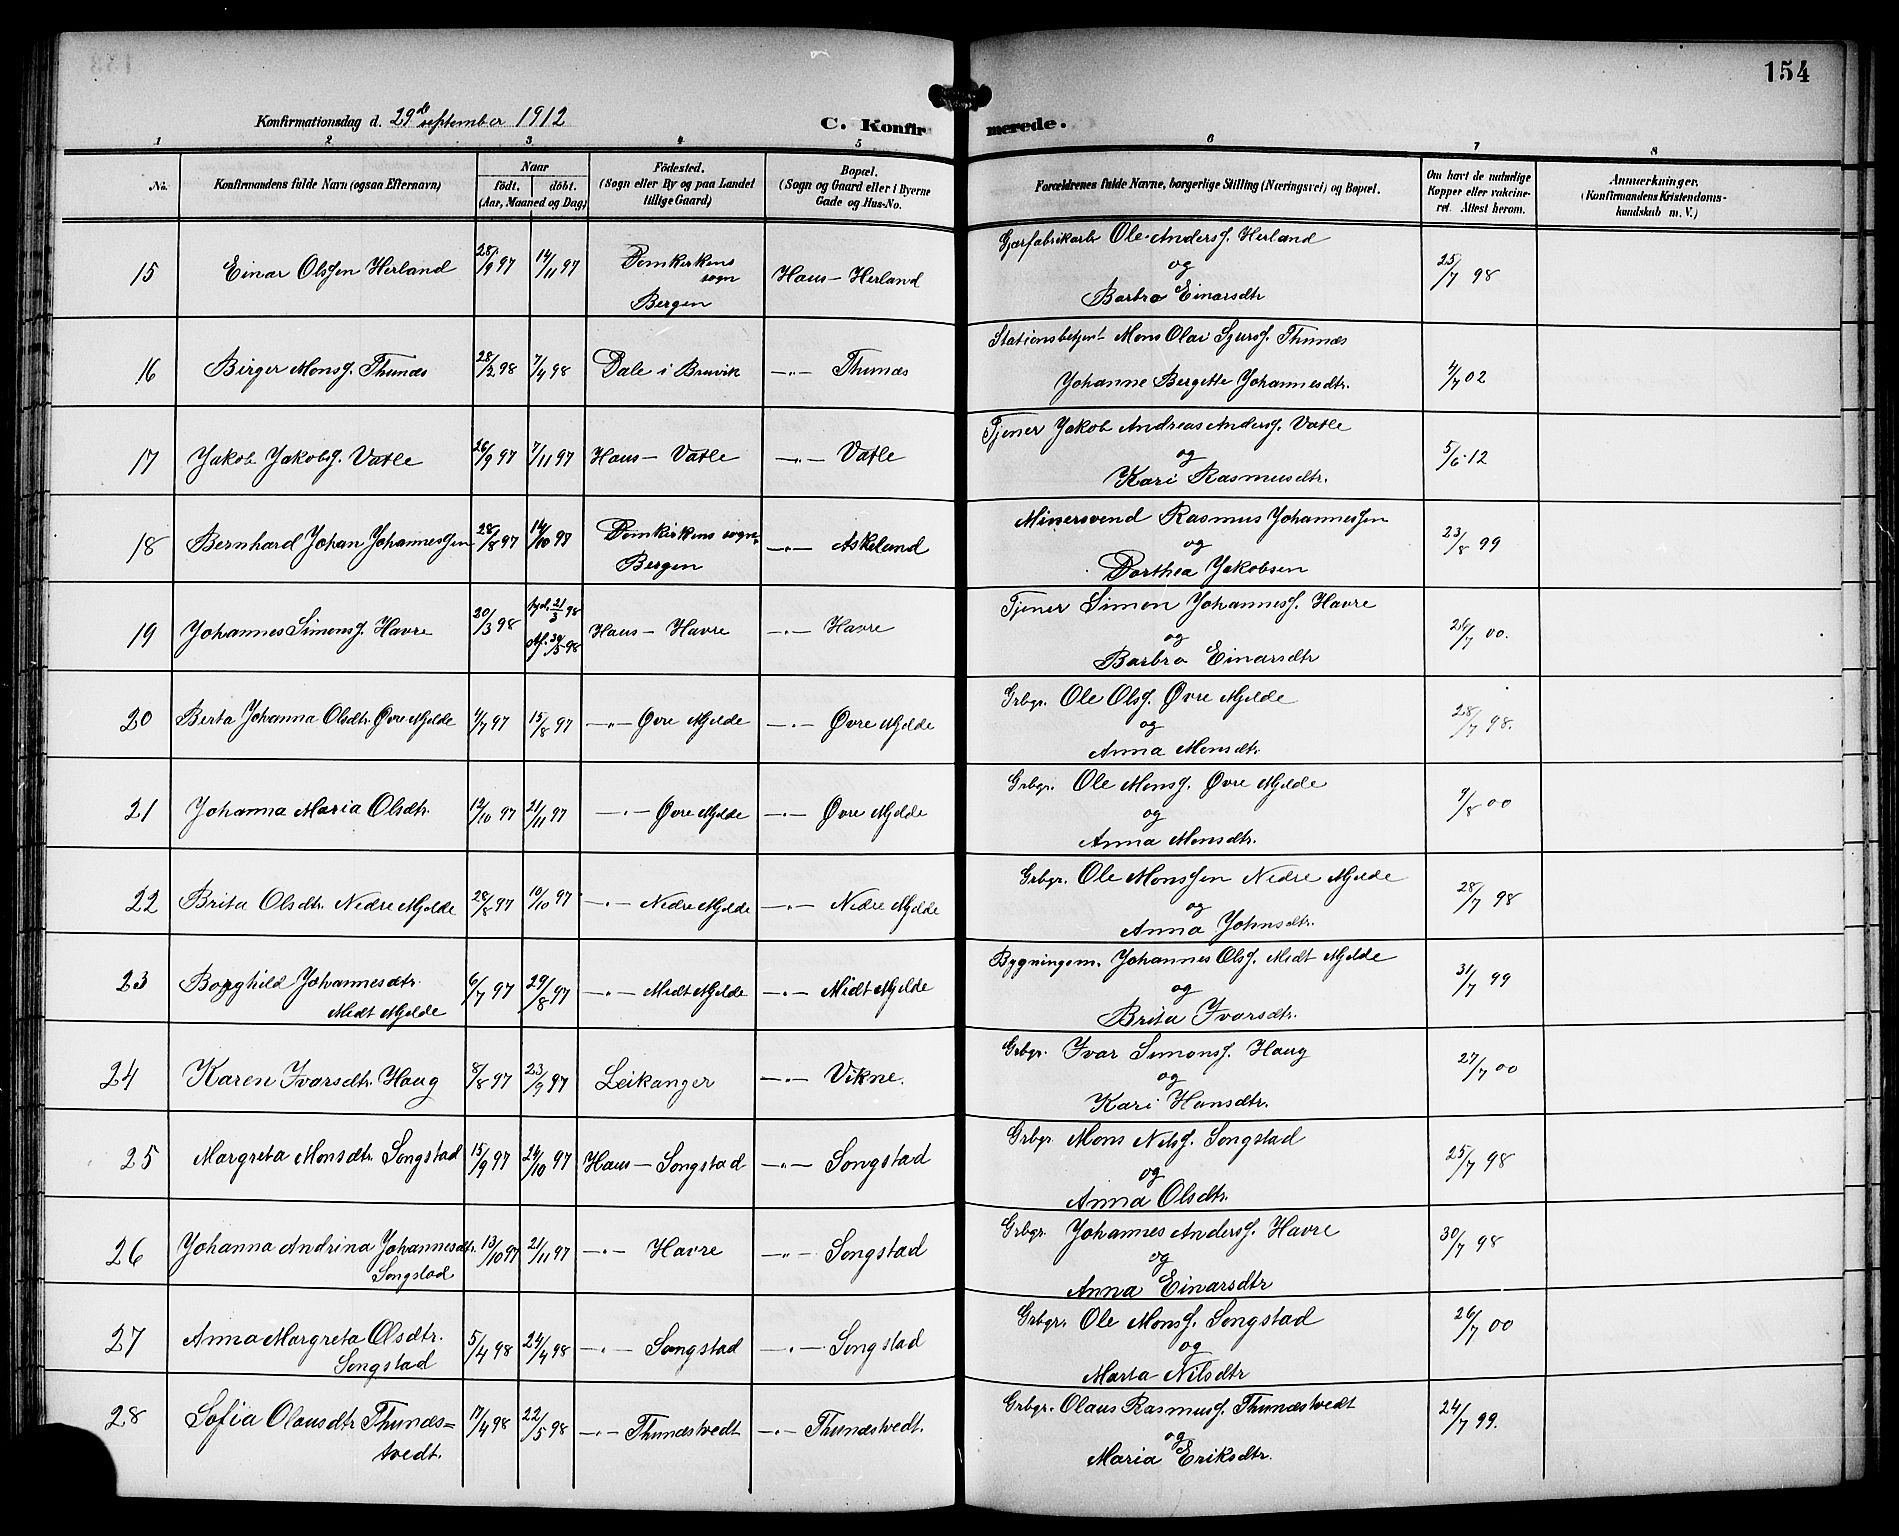 154
Konfirmationsdag d. 29de september 1912
C. Konfirmerede.
1 2 3 4 5 6 7 8
No. Konfirmandens fulde Navn (ogsaa Efternavn) Naar födt. döbt. (Aar, Maaned og Dag) Födested. (Sogn eller By og paa Landet tillige Gaard) Bopæl. (Sogn og Gaard eller i Byerne Gade og Hus-No. Forældrenes fulde Navne, borgerlige Stilling (Næringsvei) og Bopæl. Om havt de naturlige Kopper eller vakcineret. Attest herom. Anmærkninger. (Konfirmandens Kristendomskundskab m. V.)
15 Einar Olssen Herland 28/9 97 14/11 97 Domkirkens sogn Bergen Haus - Herland Gjærfabrikarb. Ole Anderss. Herland og Barbra Einarsdtr 25/7 98
16 Birger Monss. Thunæs 28/2 98 7/4 98 Dale i Bruvik -"- Thunæs Stationsbetjent Mons Olai Sjurss. Thunæs Johanne Bergette Johannesdtr. 4/7 02
17 Jakob Jakobs. Vatle 26/9 97 7/11 97 Haus - Vatle -"- Vatle Tjener Jakob Andreas Anderss. Vatle og Kari Rasmusdtr. 5/6 12
18 Bernhard Johan Johannessen 28/8 97 14/10 97 Domkirkens sogn Bergen -"- Askeland Minersvend Rasmus Johannessen og Dorthea Jakobsen 23/8 99
19 Johannes Simonss. Havre 20/3 98 hjd. 21/3 98 Haus - Havre -"- Havre Tjener Simon Johanness. Havre og Barbra Einarsdtr 26/7 00.
20 Berta Johanna Olsdtr. Øvre Mjelde 4/7 97 15/8 97 -"- Øvre Mjelde -"- Øvre Mjelde Grbgr. Ole Olss. Øvre Mjelde og Anna Monsdtr. 28/7 98.
21 Johanna Maria Olsdtr. 12/10 97 21/11 97 -"- Øvre Mjelde -"- Øvre Mjelde Grbgr. Ole Monss. Øvre Mjelde og Anna Monsdtr. 9/8 00
22 Brita Olsdtr. Nedre Mjelde 28/8 97 10/10 97 -"- Nedre Mjelde -"- Nedre Mjelde Grbgr. Ole Monssen Nedre Mjelde og Anna Johnsdtr. 28/7 98
23 Borghild Johannesdtr. Midt Mjelde 6/7 97 29/8 97 -"- Midt Mjelde -"- Midt Mjelde Bygningsm. Johannes Olss. Midt Mjelde og Brita Ivarsdtr. 31/7 99
24 Karen Ivarsdtr. Haug 8/8 97 23/9 97 Leikanger -"- Vikne. Grbgr. Ivar Simonss. Haug og Kari Hansdtr. 27/7 00
25 Margreta Monsdtr. Songstad 15/9 97 24/10 97 Haus - Songstad -"- Songstad Grbgr. Mons Nilss. Songstad og Anna Olsdtr. 25/7 98
26 Johanna Andrina Johannesdtr. Songstad 13/10 97 21/11 97 -"- Havre -"- Songstad Grbgr. Johannes Anderss. Havre og Anna Einarsdtr 30/7 98
27 Anna Margreta Olsdtr. Songstad 5/4 98 24/4 98 -"- Songstad -"- Songstad Grbgr. Ole Monss. Songstad og Marta Nilsdtr 26/7 00
28 Sofia Olausdtr Thunæstvedt. 17/4 98 22/5 98 -"- Thunæstvedt -"- Thunæstvedt. Grbgr. Olaus Rasmuss. Thunæstvedt og Maria Eriksdtr. 24/7 99.